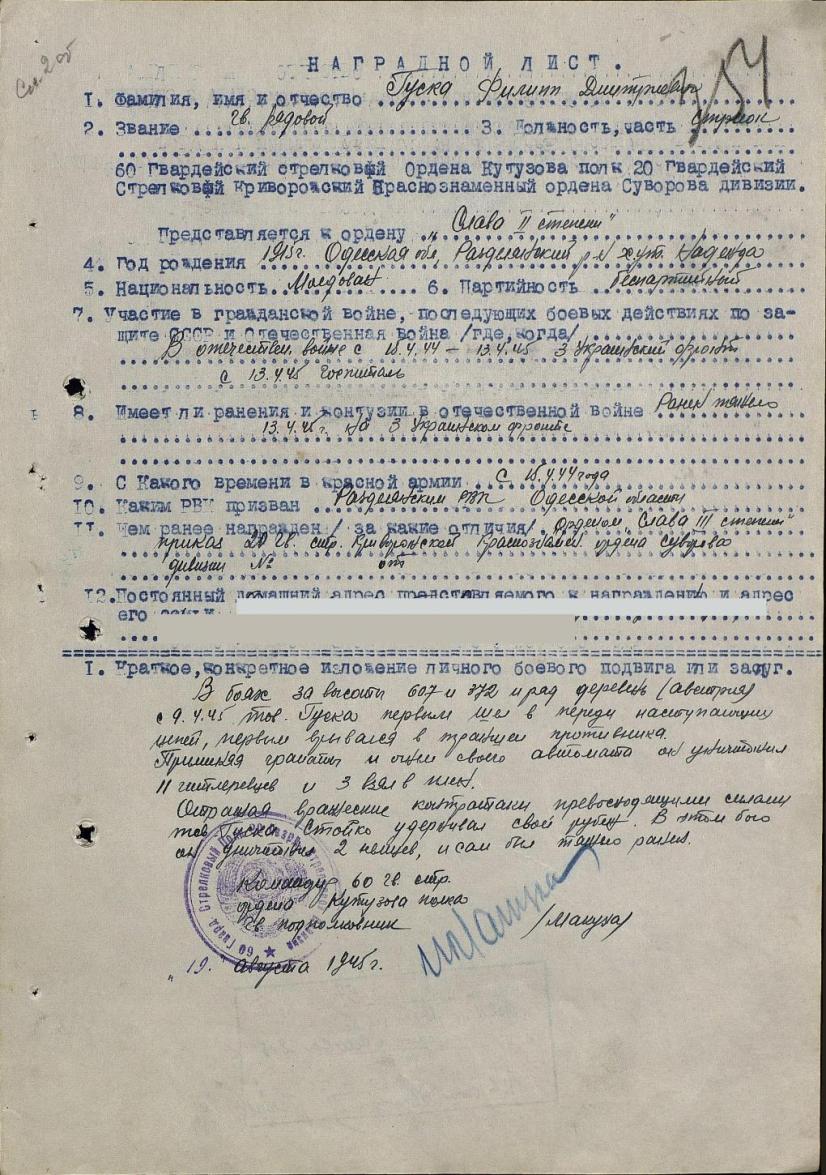 См. 2 об
НАГРАДНОЙ ЛИСТ.
1. Фамилия, имя и отчество Гуска Филипп Дмитриевич
2. Звание гв. рядовой 3. Должность, часть стрелок
60 Гвардейский стрелковый Ордена Кутузова полк 20 Гвардейский
Стрелковый Криворожский Краснознаменный ордена Суворова дивизии.
Представляется к ордену „Слава II степени"
4. Год рождения 1915г. Одесская обл, Разделянский р-н хут. Надежда
5. Национальность Молдован 6. Партийность беспартийный
7. Участие в гражданской войне, последующих боевых действиях по за-
щите СССР и Отечественная война /где, когда/
В отечествен. войне с 15.4.44 – 13.4.45 3 Украинский фронт
с 13.4.45 Госпиталь
8. Имеет ли ранения и контузии в отечественной войне Ранен тяжело
13.4.45г. на 3 Украинском фронте
9. С Какого времени в красной армии с 15.4.44 года
10. Каким РВК призван Разделянским РВК Одесской области
11. Чем ранее награжден/ за какие отличия/ Орденом „Слава III степени"
приказ 20 гв. стр. Криворожской Краснознамен ордена Суворова
дивизии № от
12. Постоянный домашний адрес представляемого к награждению и адрес
его семьи
1. Краткое, конкретное изложение личного боевого подвига или заслуг.
В боях за высоты 607 и 372 и ряд деревень (Австрия)
с 9.4.45 тов. Гуска первым шел в переди наступающих
цепей, первым врывался в траншеи противника.
Применяя гранаты и огнем своего автомата он уничтожил
11 гитлеровцев и 3 взял в плен.
Отражая вражеские контратаки превосходящими силами
тов Гуска стойко удерживал свой рубеж. В этом бою
он уничтожил 2 немцев, и сам был тяжело ранен.
Командир 60 гв. стр.
ордена Кутузова полка
Гв. подполковник /Макуха/
„19." августа 1945г.